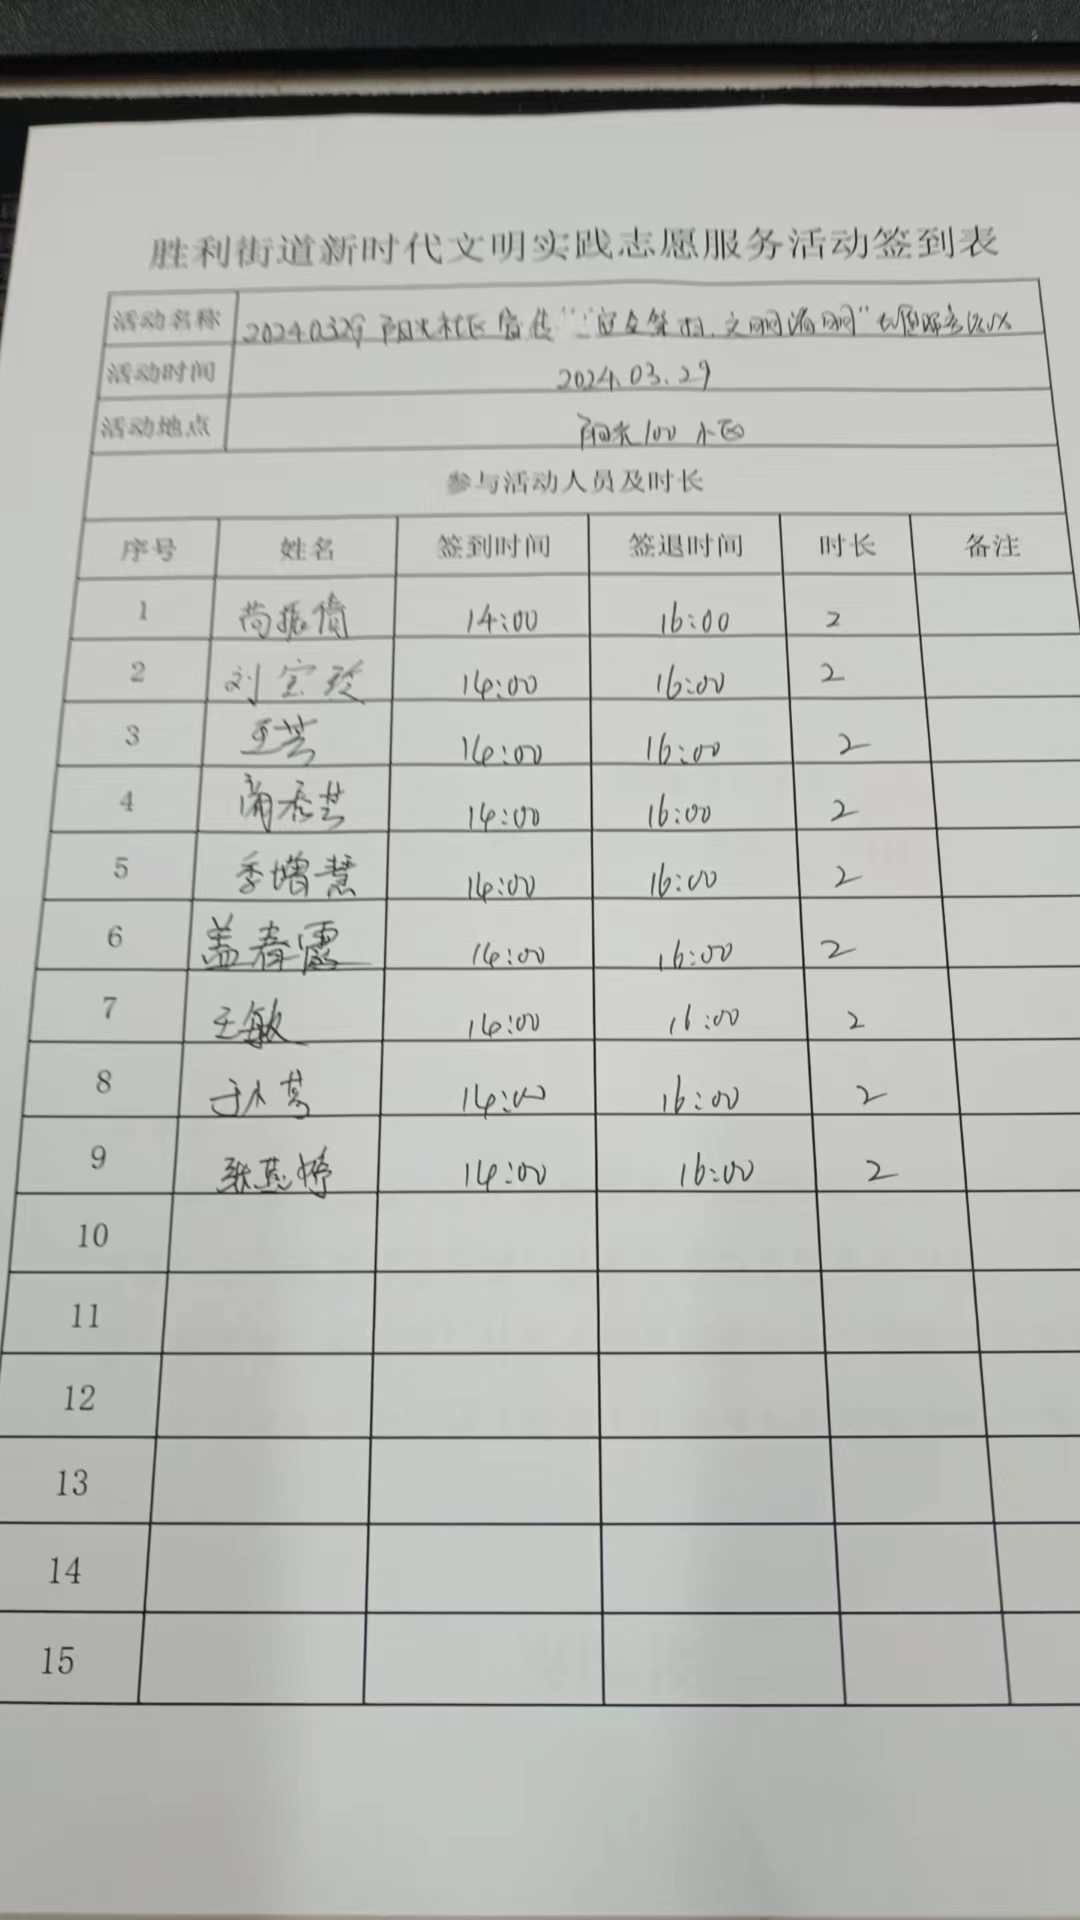 胜利街道新时代文明实践志愿服务活动签到表
活动名称 20240329 阳光社区宣传“安全第一，文明清明”志愿服务活动
活动时间 2024.03.29
活动地点 阳光100 小区
参与活动人员及时长
序号 姓名 签到时间 签退时间 时长 备注
1 14:00 16:00 2
2 刘宝玲 14:00 16:00 2
3 王芳 14:00 16:00 2
4 14:00 16:00 2
5 季增慧 14:00 16:00 2
6 盖春霞 14:00 16:00 2
7 王敏 14:00 16:00 2
8 14:00 16:00 2
9 张燕婷 14:00 16:00 2
10
11
12
13
14
15